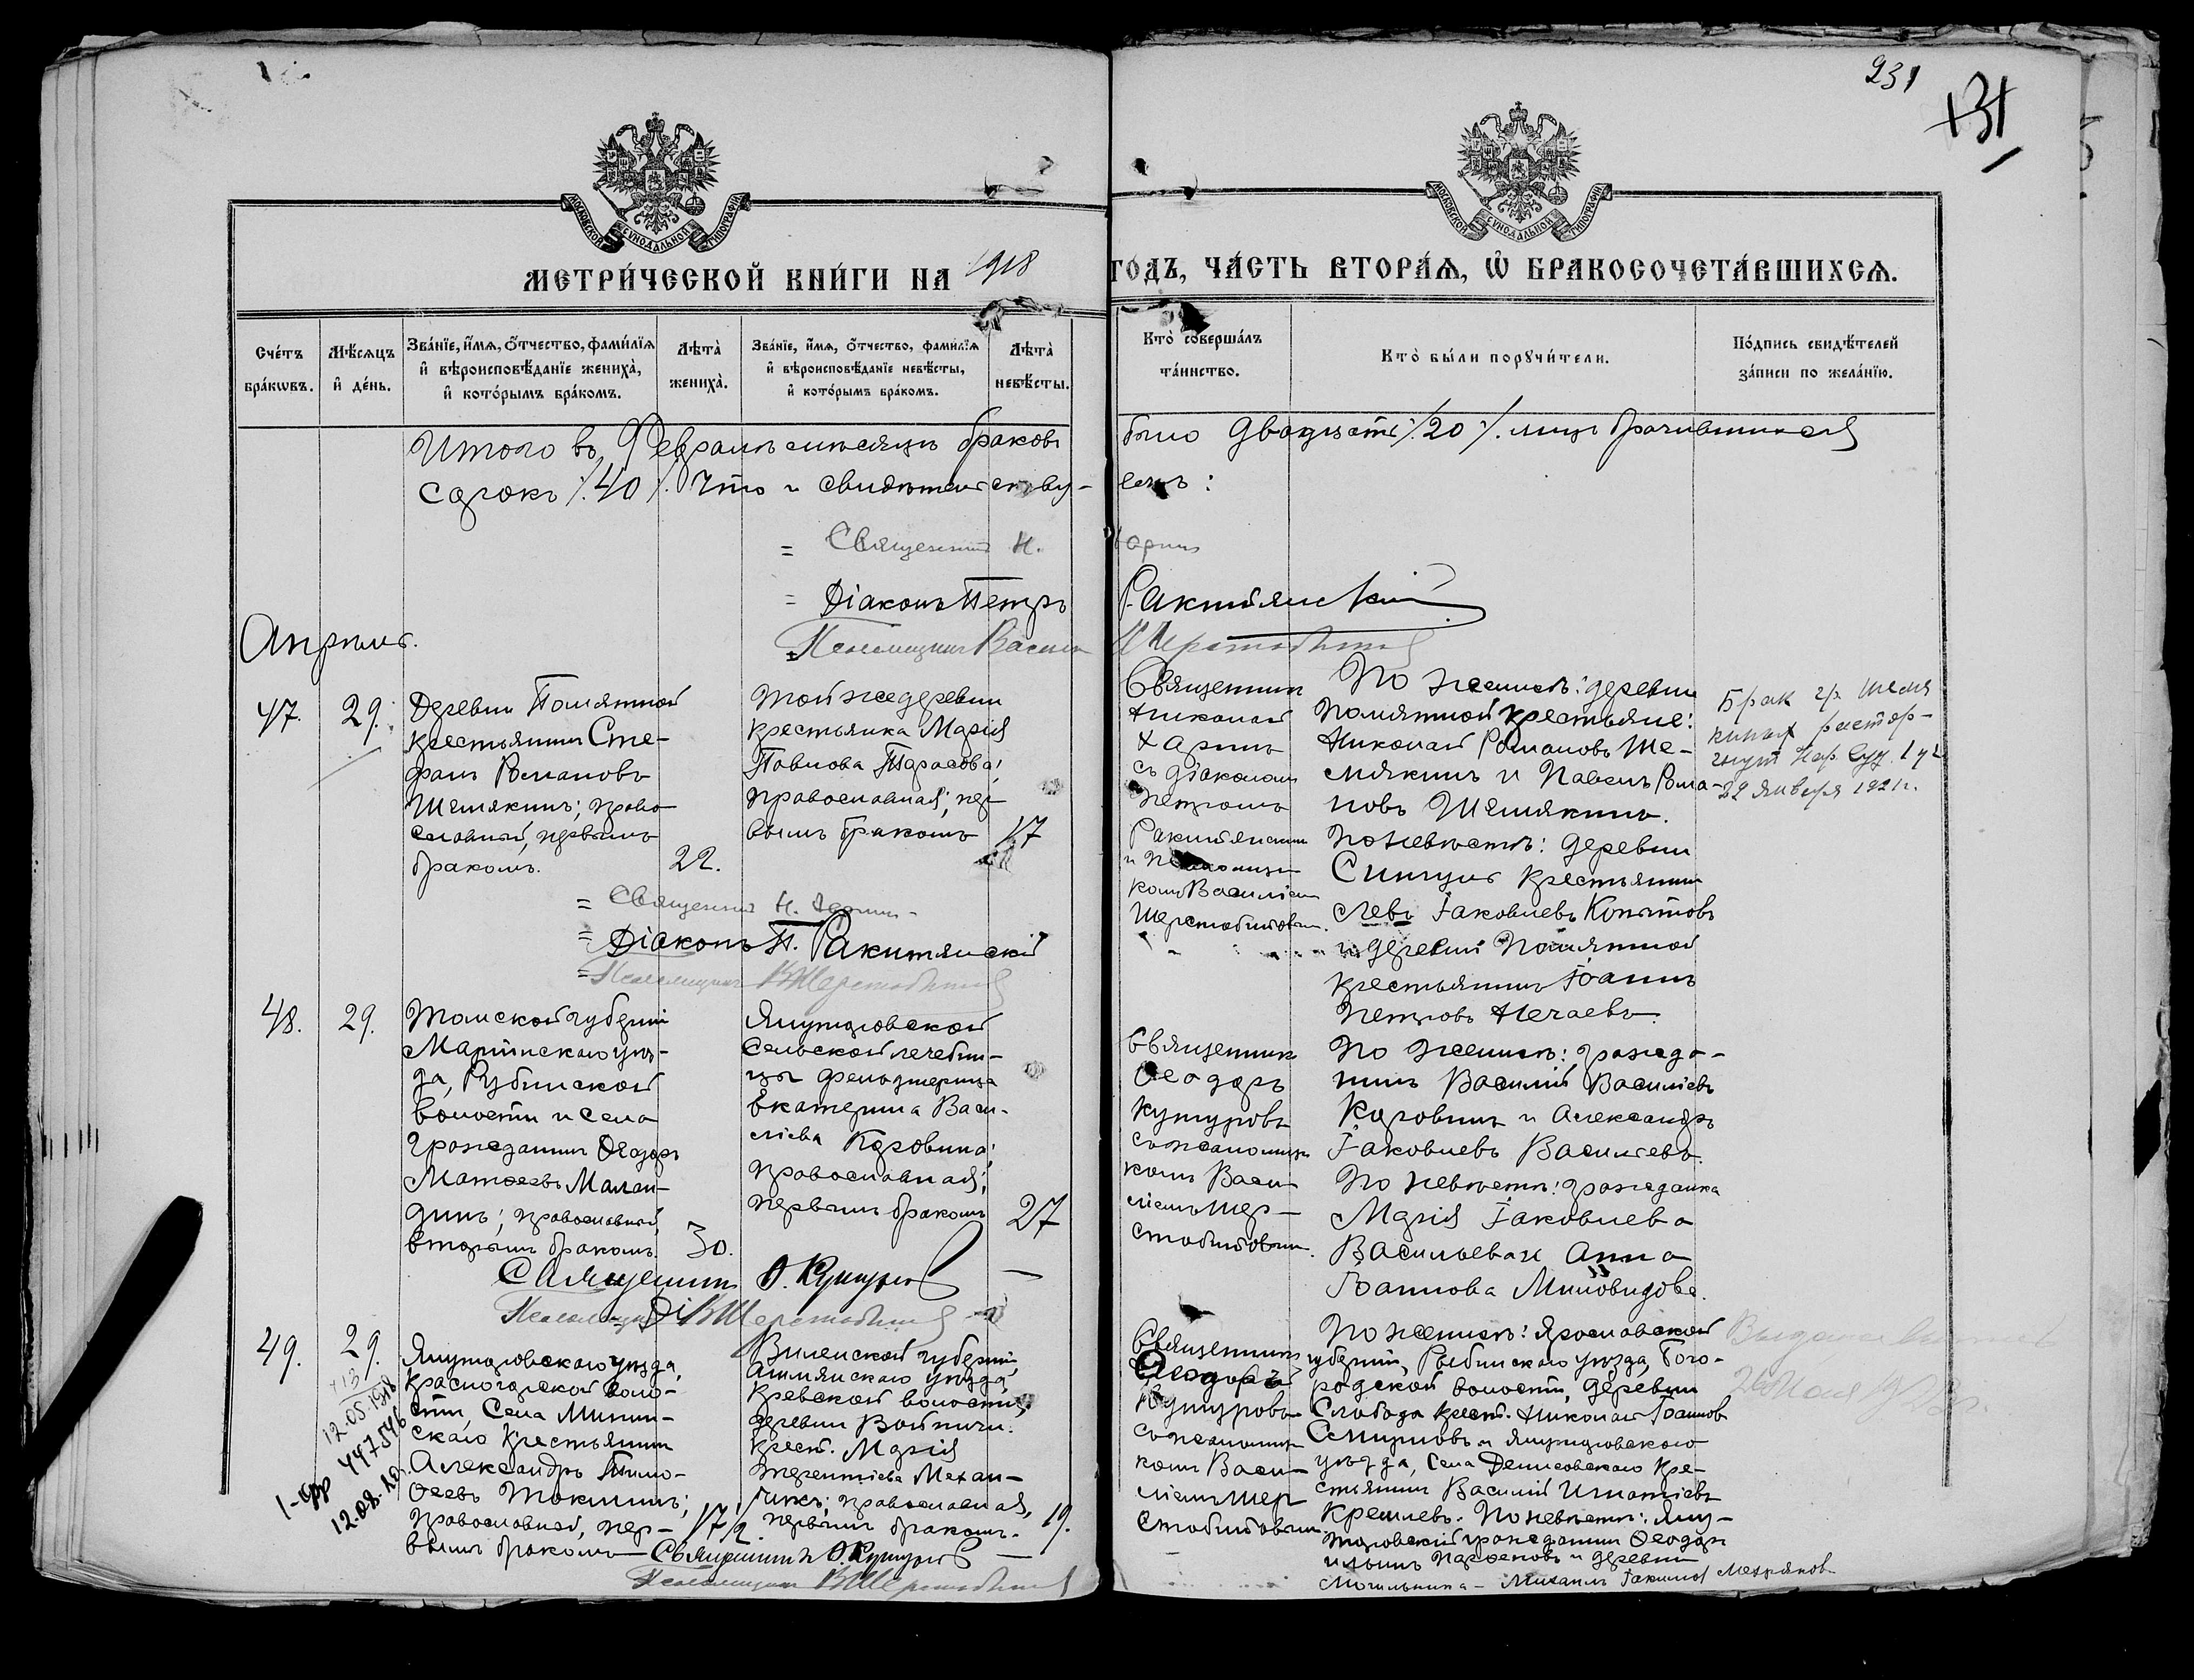 231
131
МОСКОВСКОЙ СѴНОДАЛЬНОЙ ТИПОГРАФІИ
МОСКОВСКОЙ СѴНОДАЛЬНОЙ ТИПОГРАФІИ
МЕТРИ́ЧЕСКОЙ КНИ́ГИ НА 1918
ГОДЪ, ЧА́СТЬ ВТОРА́Ѧ, Ѡ҆ БРАКОСОЧЕТА́ВШИХСѦ.
Сче́тъ бра́кѡвъ.
Мѣ́сѧцъ и҆ де́нь.
Зва́нїе, и҆́мѧ, ѻ҆́тчество, фами́лїѧ и҆ вѣроисповѣ́данїе жениха̀, и҆ кото́рымъ бра́комъ.
Лѣта̀ жениха̀.
Зва́нїе, и҆́мѧ, ѻ҆́тчество, фами́лїѧ и҆ вѣроисповѣ́данїе невѣ́сты, и҆ кото́рымъ бра́комъ.
Лѣта̀ невѣ́сты.
Кто̀ соверша́лъ та́инство.
Кто̀ бы́ли порꙋчи́тели.
По́дпись свидѣ́телей за́писи по жела́нїю.
Итого въ Феврале месяцъ браковъ было двадцать /.20 /. лицъ брачившихся
сорокъ /.40 /. Что и свидѣтельству- емъ:
= Священникъ Н. Чарин
= Діаконъ Петръ Ракитянскій
= Псаломщикъ Васил Шерстобитов
Апрѣль.
47.
29.
Деревни Помятной
крестьянинъ Сте-
фанъ Романовъ
Шемякинъ; право-
славный, первымъ
бракомъ.
22.
Той же деревни
крестьянка Марія
Павлова Тарасова;
православная; пер-
вымъ бракомъ
17
Священник
Николай
Харин
съ діаконом
Петромъ
Ракитянским
и Псаломщи-
комъ Василіем
Шерстобитовым.
По женихѣ: деревни
Помятной крестьяне:
Николай Романовъ Ше-
мякинъ и Павелъ Рома-
новъ Шемякинъ.
По невѣстѣ: деревни
Сингуль крестьянин
Левъ Іаковлевъ Копытовъ
и деревни Помятной
крестьянинъ Іоаннъ
Петровъ Нечаевъ.
Брак гр. Шемя
киных растор-
гнут Нар. Суд. 1 уч
22 января 1921 г.
= Священник Н. Чарин
= Діаконъ П. Ракитянскій
= Псаломщик В Шерстобитов
48.
29.
Томской губерніи
Маріинскаго уѣз-
да, Рубинской
волости и села
гражданин Ѳеодоръ
Матѳеевъ Малан-
динъ; православный,
вторымъ бракомъ.
30.
Ялуторовской
Сельской лечебни-
цы фельдшерица
Екатерина Васи-
ліева Коровина;
православная;
первымъ бракомъ
27
Священник
Ѳеодоръ
Кутуровъ
съ псаломщи-
комъ Васи-
ліемъ Шер-
стобитовым.
По женихѣ: гражда-
нинъ Василій Василіевъ
Коровинъ и Александръ
Іаковлевъ Васильевъ.
По невѣстѣ: гражданка
Марія Іаковлева
Васильева и Анна
Іоаннова Миловидова.
Священникъ Ѳ. Кутуровъ
Псаломщик В Шерстобитов
49.
29.
12.05.1918
447546
12.08.
Ялуторовскаго уѣзда,
Красногорской воло-
сти, Села Минин-
скаго крестьянин
Александръ Тимо-
ѳеевъ Токминъ;
православной, пер-
вымъ бракомъ
17 1/2.
Виленской губерніи,
Ашмянскаго уѣзда,
Кревской волости,
деревни Войничи.
крест. Марія
Терентіева Механ-
чикъ; православная,
первымъ бракомъ.
19.
Священник
Ѳеодоръ
Кутуровъ
съ псаломщи-
комъ Васи-
ліемъ Шер-
стобитовым.
По женихѣ: Ярославской
губерніи, Рыбинскаго уѣзда, Бого-
родской волости, деревни
Слобода крест. Николай Іоаннов
Смирновъ и Ялуторовскаго
уѣзда, Села Денисовскаго кре-
стьянин Василій Игнатіевъ
Крешлевъ. По невѣстѣ: Ялу-
торовскій гражданин Ѳеодоръ
Парѳеновъ и деревни
Могильника - Михаилъ Іакимов
Священникъ Ѳ. Кутуровъ
Псаломщик В Шерстобитов